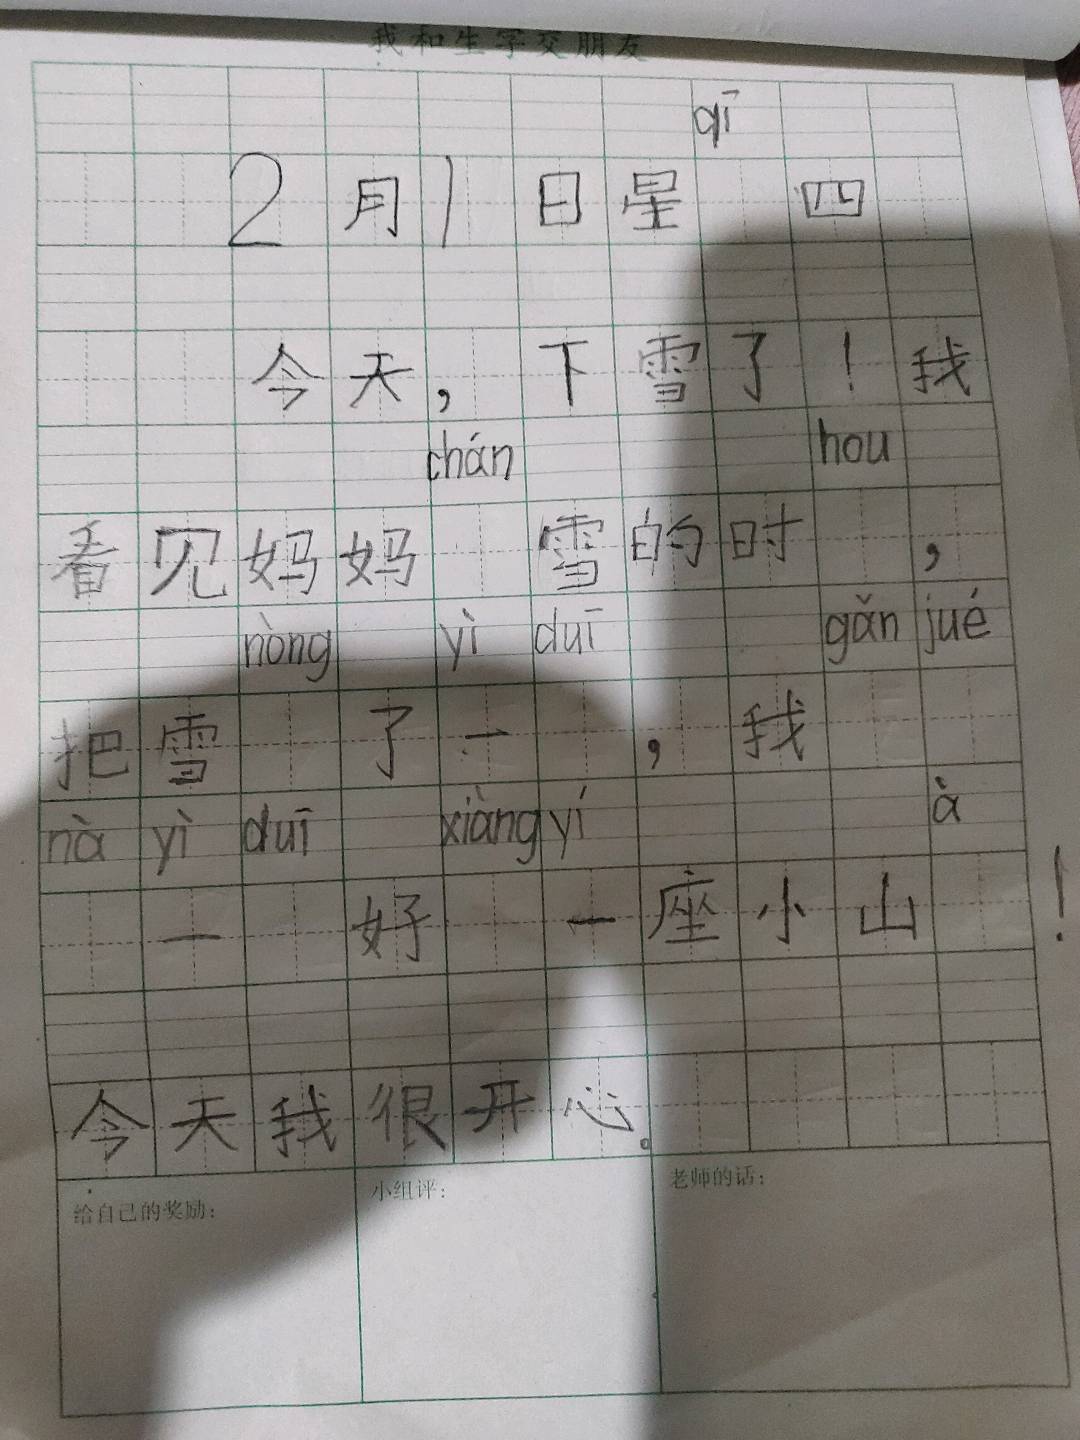 我和生字交朋友
qī
2月1日星 四
今天，下雪了！我
chán hou
看见妈妈 雪的时 ，
nòng yì duī gǎn jué
把雪 了一 ，我
nà yì duī xiàng yí à
一 好 一座小山 ！
今天我很开心。
给自己的奖励： 小组评： 老师的话：